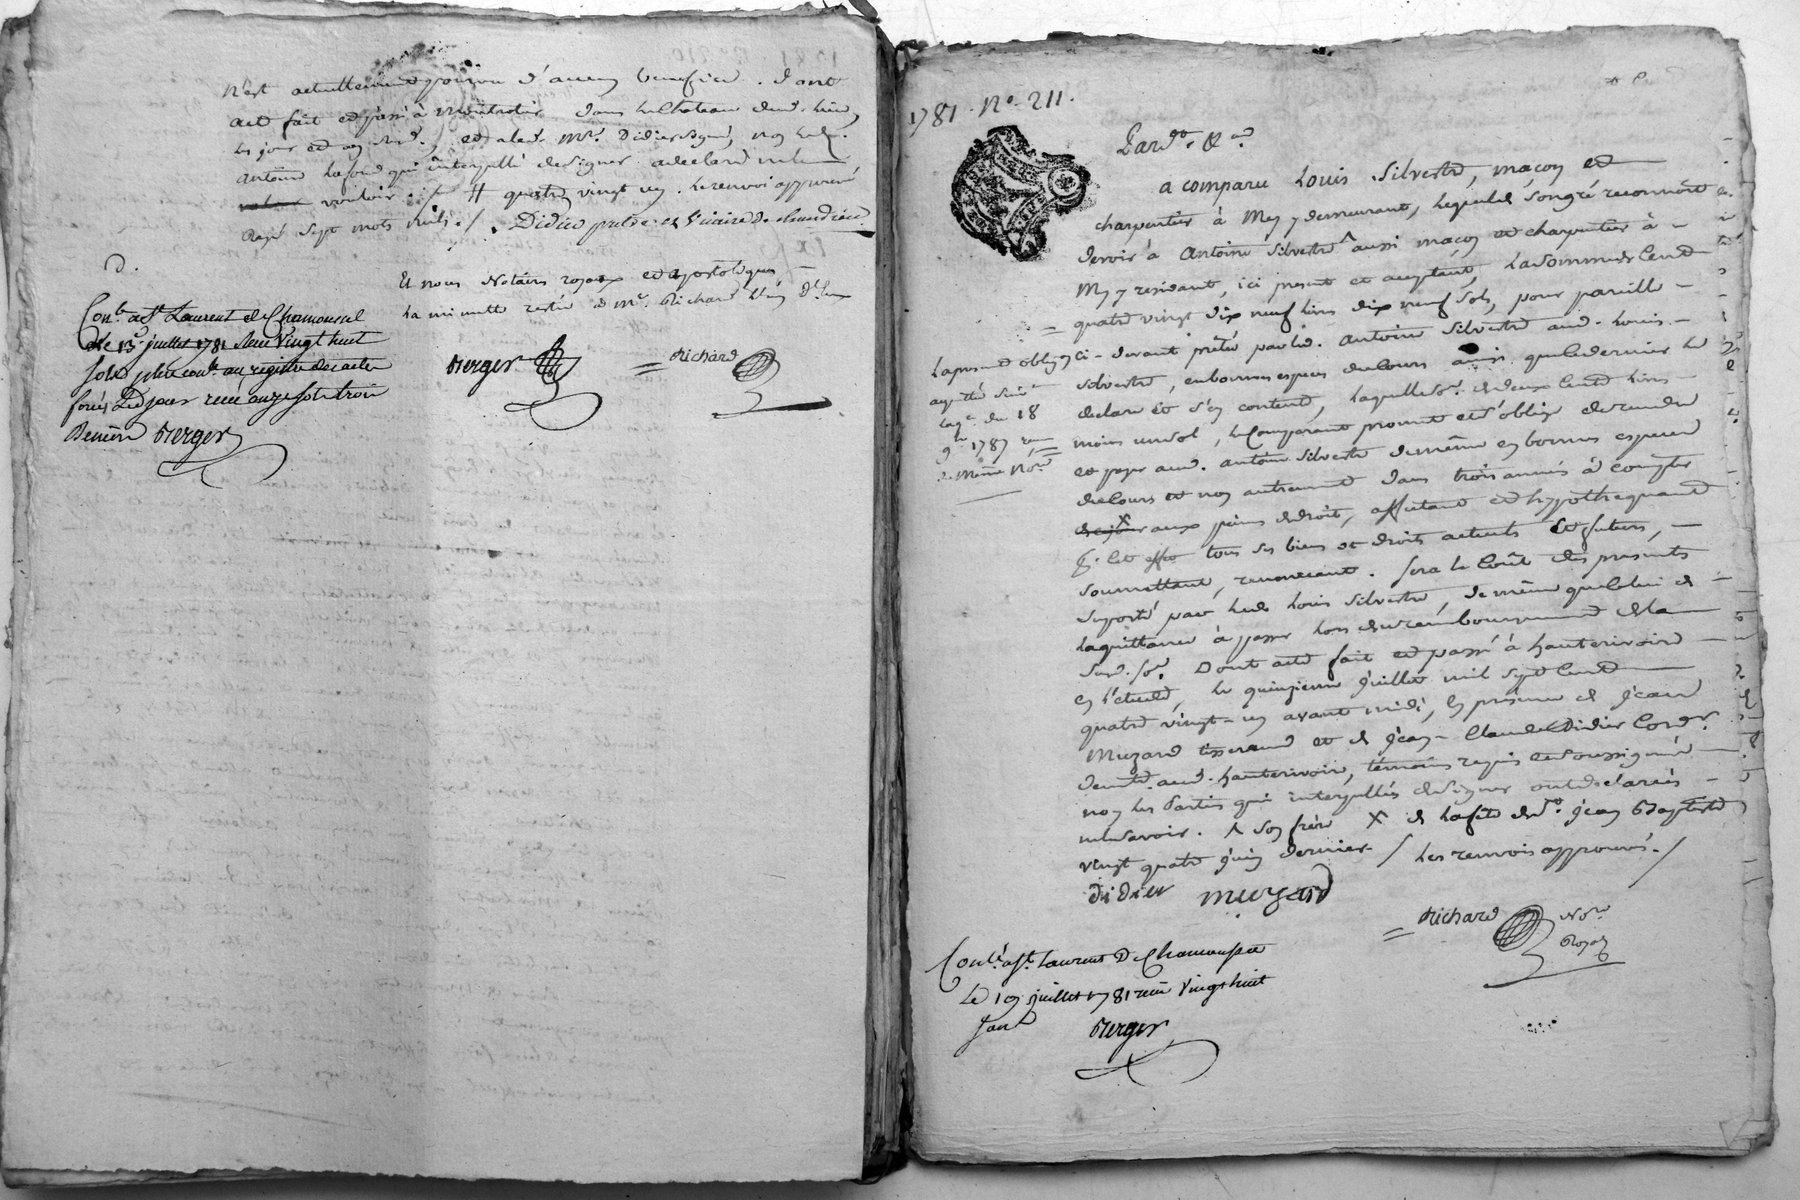 n'est actuellement pourvu d'aucun benefice. dont
acte fait et passé à Montrotier dans le Chateau dud. lieu,
les jour et an susd. et aled. Mre. Didier signé, non led. Sr.
antoine Lafond qui interpellé de signer a declaré ne le
vouloir ./. # quatre vingt un. le renvoi approuvé
Rayé sept mots nuls ./. Didier pretre et vicaire de
Et nous Notaires royaux et apostoliques
la minutte restée à Me. Richard l'un d'eux
Berger Richard
Conlé. a St Laurent de Chamousset
le 15 juillet 1781 Reçu Vingt huit
sols plus conlé. au registre des actes
led jour reçu onze sols trois
Deniers Berger
1781. No. 211.
Pardt. &a.
a comparu Louis Silvestre, maçon et
charpentier à Mey y demeurant, lequel de son gré reconnoit
devoir à Antoine Silvestre ^ aussi maçon et charpentier à
Mey y residant, ici present et acceptant, la somme de Cent
quatre vingt dix neuf livres dix neuf sols, pour pareille
ci-devant prêtée par led. Antoine Silvestre aud. Louis
Silvestre, en bonnes especes de cours ainsi que ce dernier le
declare et s'en contente, laquelle se. de deux cents livres
moins un sol, le Comparant promet et s'oblige de rendre
et payer aud. antoine Silvestre de même en bonnes especes
de cours et non autrement dans trois années à compter
de ce jour X aux peines de droit, affectant et hypothequant
tous ses biens et droits actuels et futurs,
soumettant, renonceant. Sera le Coût des presentes
suporté par led. Louis Silvestre, de même que celui de
la quittance à passer lors du remboursement de la
susd. se. Dont acte fait et passé à hauterivoire
en l'étude, le quinzieme juillet mil sept cent
quatre vingt-un avant midi, en présence de Jean
Muzard tisserand et de Jean-Claude Didier Cordr.
demt. aud. hauterivoire, témoins requis et soussignés
non les Parties qui interpellées de signer ont declarées
ne le savoir. ^ son frère X de la fête de St. Jean Baptiste
vingt quatre juin dernier ./. les renvois approuvés ./.
Didier Muzard
Richard Nore
Royal
La presente obligon
acquittée suivt
quitce du 18
9bre 1787 reçue
le même Nore
Conlé. a St. Laurent De Chamousset
Le 19 juillet 1781 reçu Vingt huit
sous Berger